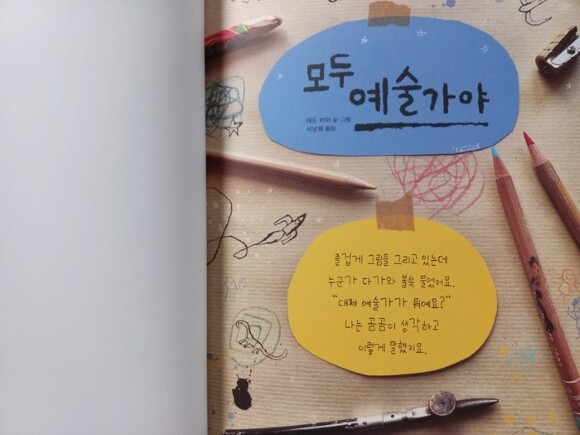 모두
예술가야
에드 비어 글·그림
서남희 옮김
즐겁게 그림을 그리고 있는데
누군가 다가와 불쑥 물었어요.
"대체 예술가가 뭐예요?"
나는 곰곰이 생각하고
이렇게 말했지요.